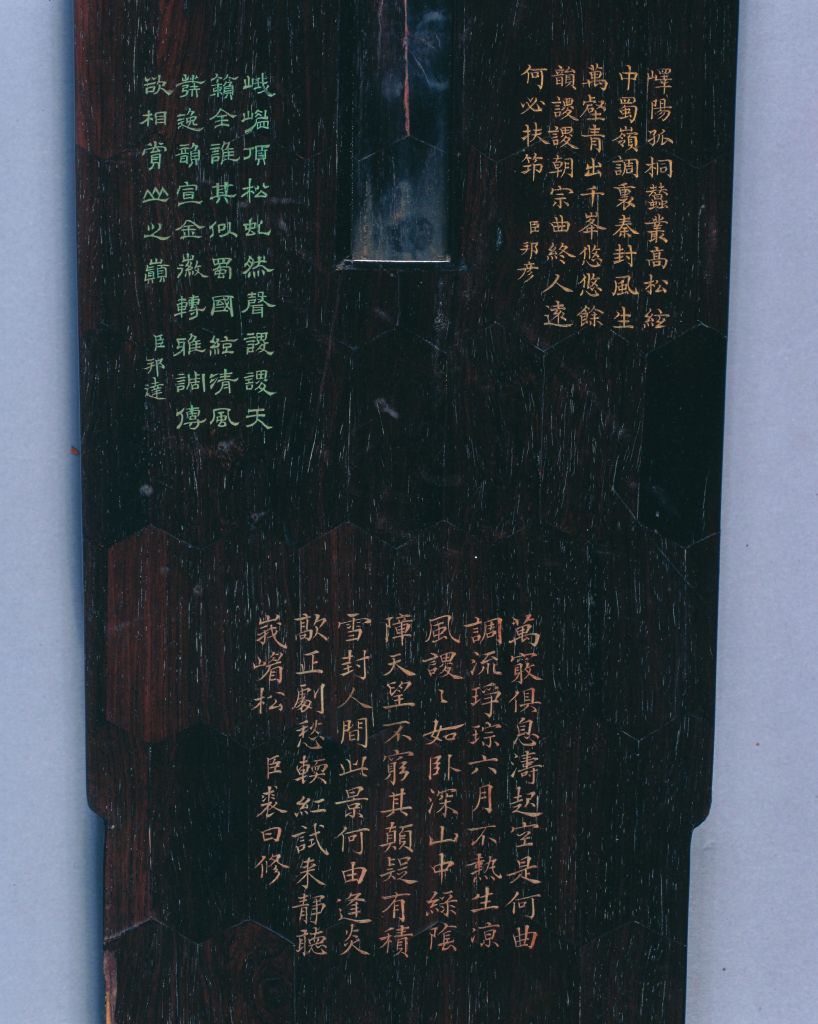 嶧陽孤桐蠶叢高松絃
中蜀嶺調裏秦封風生
萬壑青出千峯悠悠餘
韻謖謖朝宗曲終人遠
何必扶筇 臣邦彥
峨嵋頂松虬然聲謖謖天
籟全誰其似蜀國絃清風
發逸韻宣金徽轉雅調傳
欲相賞山之巔 臣邦達
萬竅俱息濤起空是何曲
調流琤琮六月不熱生涼
風謖〻如卧深山中綠陰
障天望不窮其顛疑有積
雪封人間此景何由逢炎
歊正劇愁輭紅試来静聽
峩嵋松 臣裘曰修